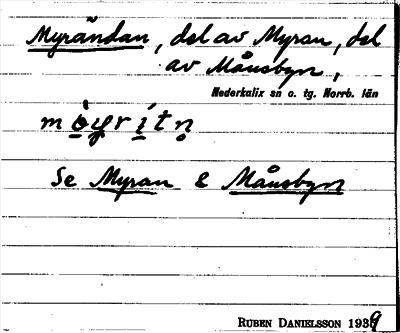 Myrändan, del av Myran, del
av Månsbyn,
Nederkalix sn o. tg. Norrb. län
Se Myran & Månsbyn
RUBEN DANIELSSON 1939